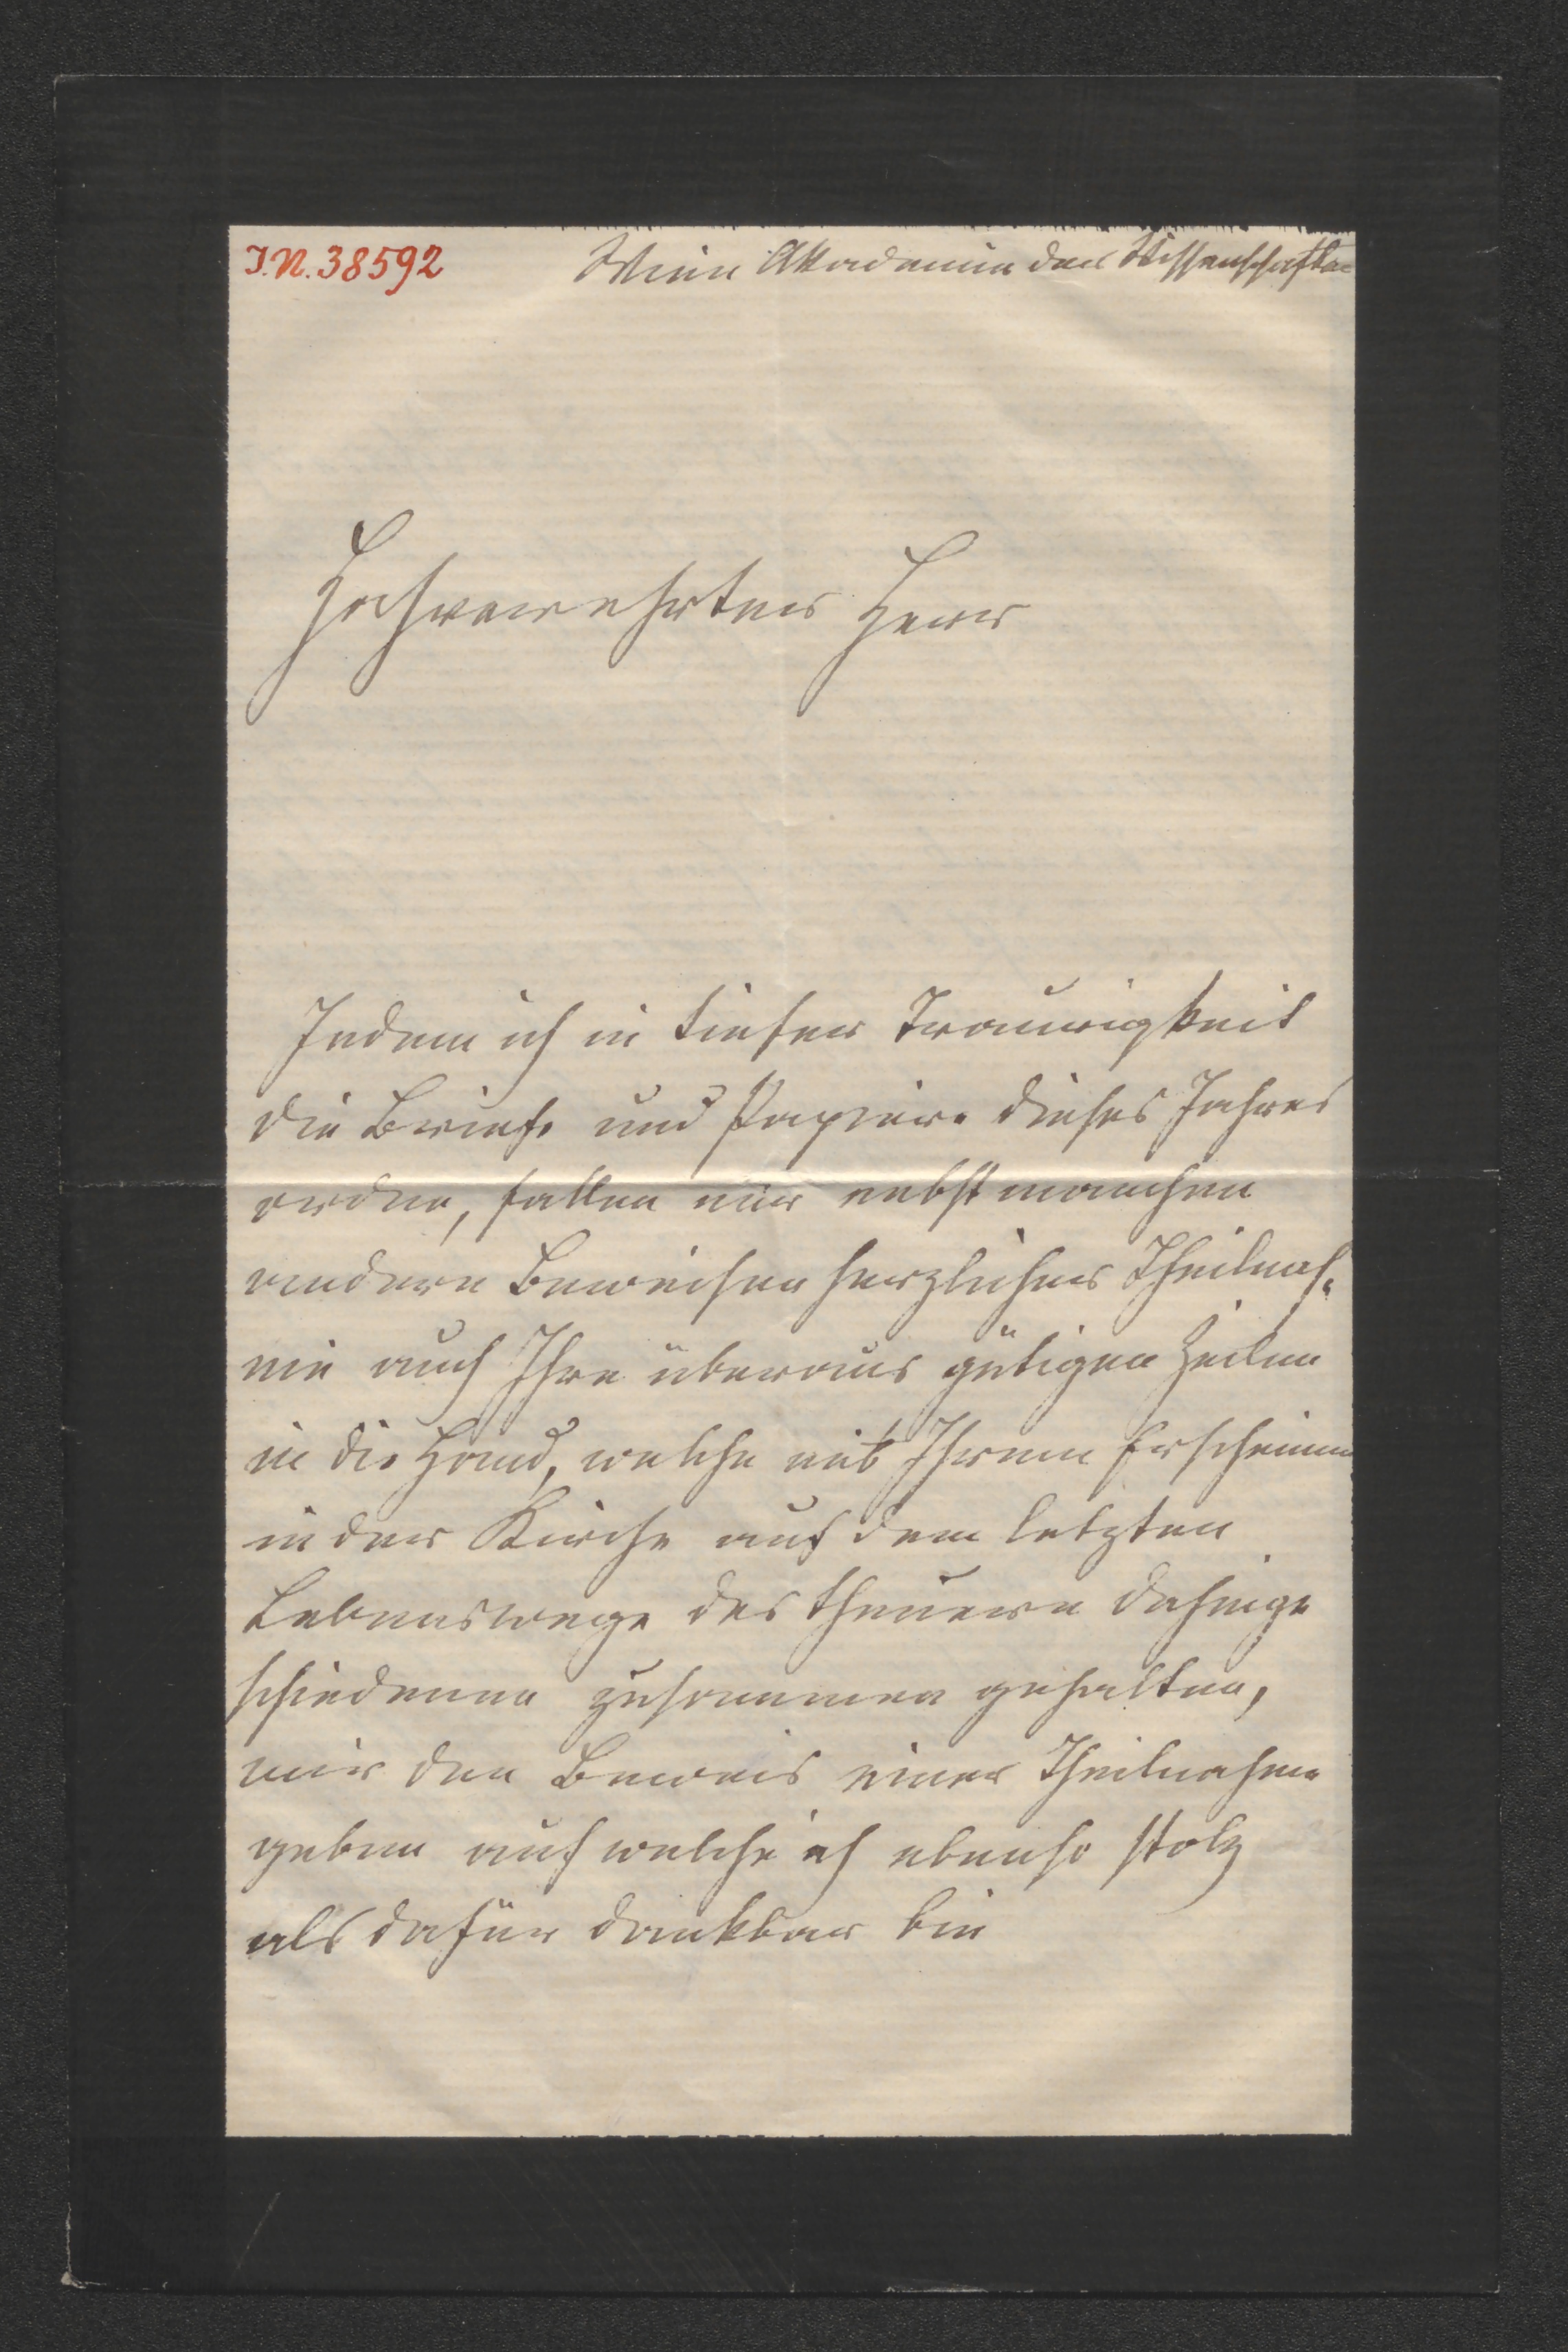 I.N. 38592
Wien Akademie der Wissenschaften
Hochverehrter Herr
Indem ich in tiefer Traurigkeit
die Briefe und Papiere dieses Jahres
ordne, fallen mir nebst manchen
andern Beweisen herzlicher Theilnah-
me auch Ihre überaus gütigen Zeilen
in die Hand, welche mit Ihrem Erscheinen
in der Kirche auf dem letzten
Lebenswege des theuern Dahinge
schiedenen zusammen gehalten,
mir den Beweis einer Theilnahme
geben auf welche ich ebenso stolz
als dafür dankbar bin